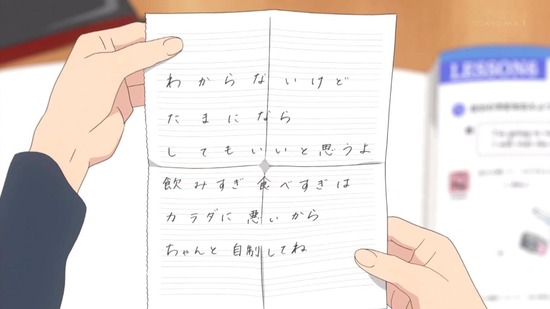 わからないけど
たまになら
してもいいと思うよ
飲みすぎ食べすぎは
カラダに悪いから
ちゃんと自制してね
LESSON6